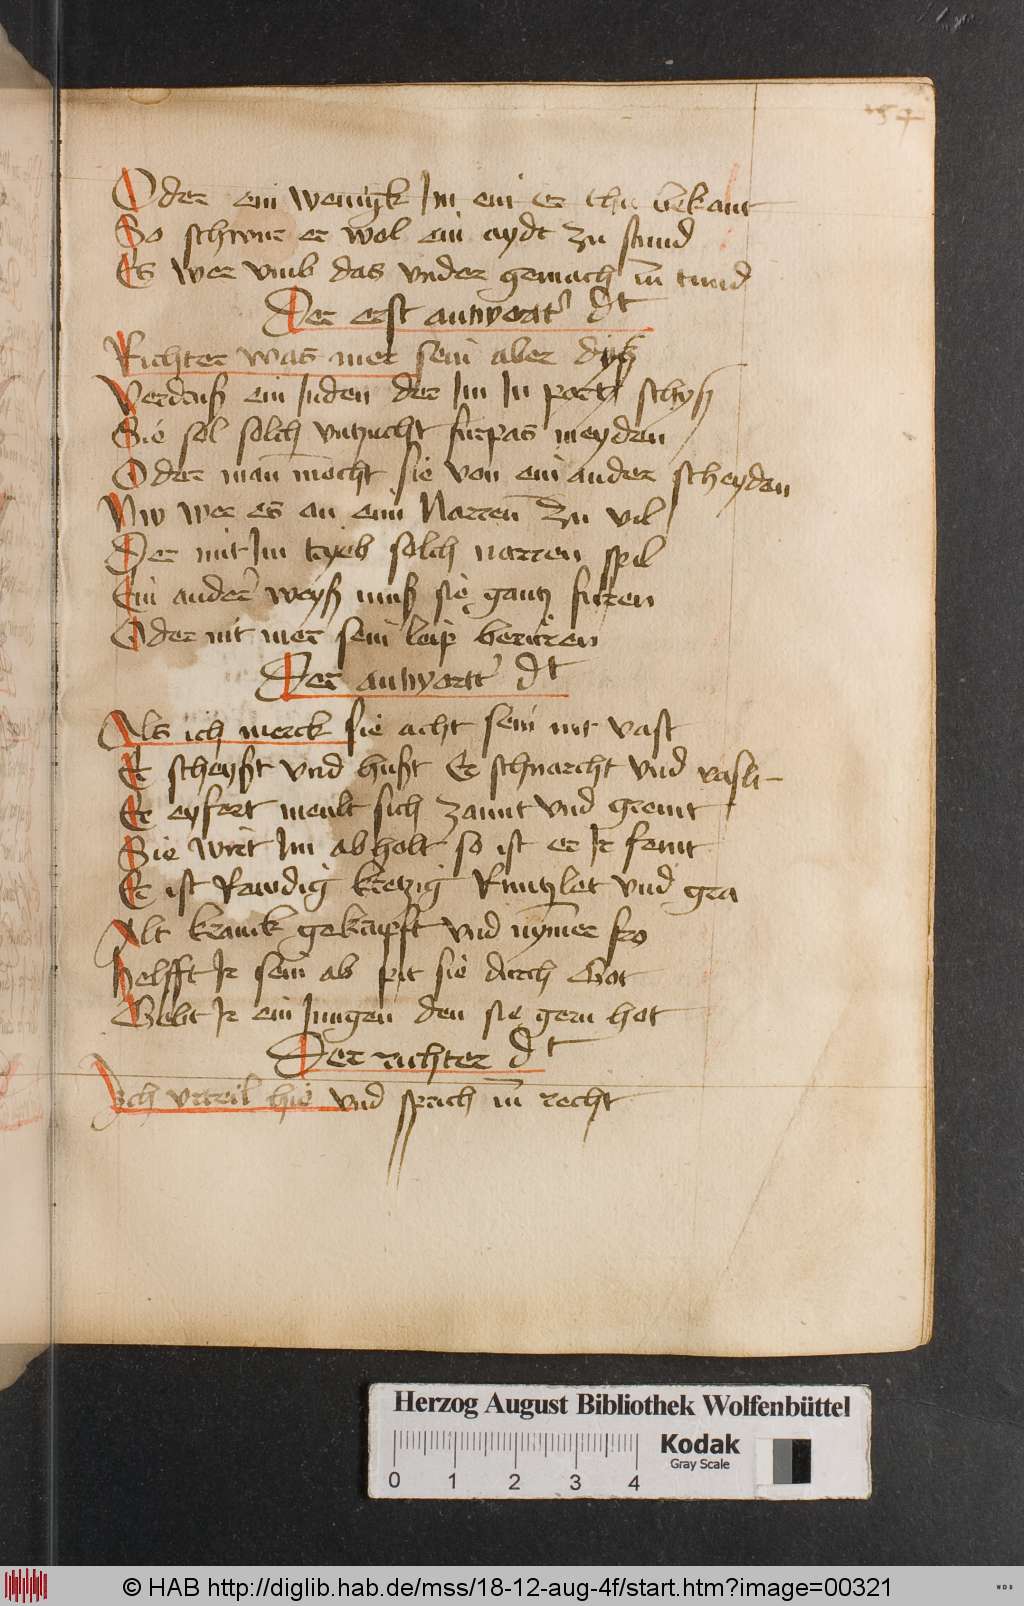 154
Oder ein wenigk Im ein er thu bekant
So schwur er wol ein aydt zu stund
Es wer vmb das vnder gemach im rund
Der erst antwort dt
Richter was mer sein aber dyß
Verdruß ein Juden der Im In part schyß
Sie sol solch vntzucht furpas meyden
Oder man mocht sie von ein ander scheyden
Nw wer es an eim Narren zu vil
Der mit Im tryeb solch narren spil
Ein ander weyß muß sie gantz furen
Oder nit mer sein leip beruren
Der antwortt dt
Als ich merck sie acht sein nit vast
Er scheyst vnd hust Er schnarcht vnd rast
Er eyfert meult sich zannt vnd gremt
Sie wirt Im abholt so ist er Ir fremt
Er ist Rewdig kretzig Runtzlet vnd gra
Alt kranck gekrupft vnd nymer fro
Helfft Ir sein ab pit sie durch Got
Gebt Ir ein Jungen den sie gern hot
Der richter dt
Ich vrteil hie vnd sprich im recht
Herzog August Bibliothek Wolfenbüttel
0 1 2 3 4
Kodak
Gray Scale
© HAB http://diglib.hab.de/mss/18-12-aug-4f/start.htm?image=00321